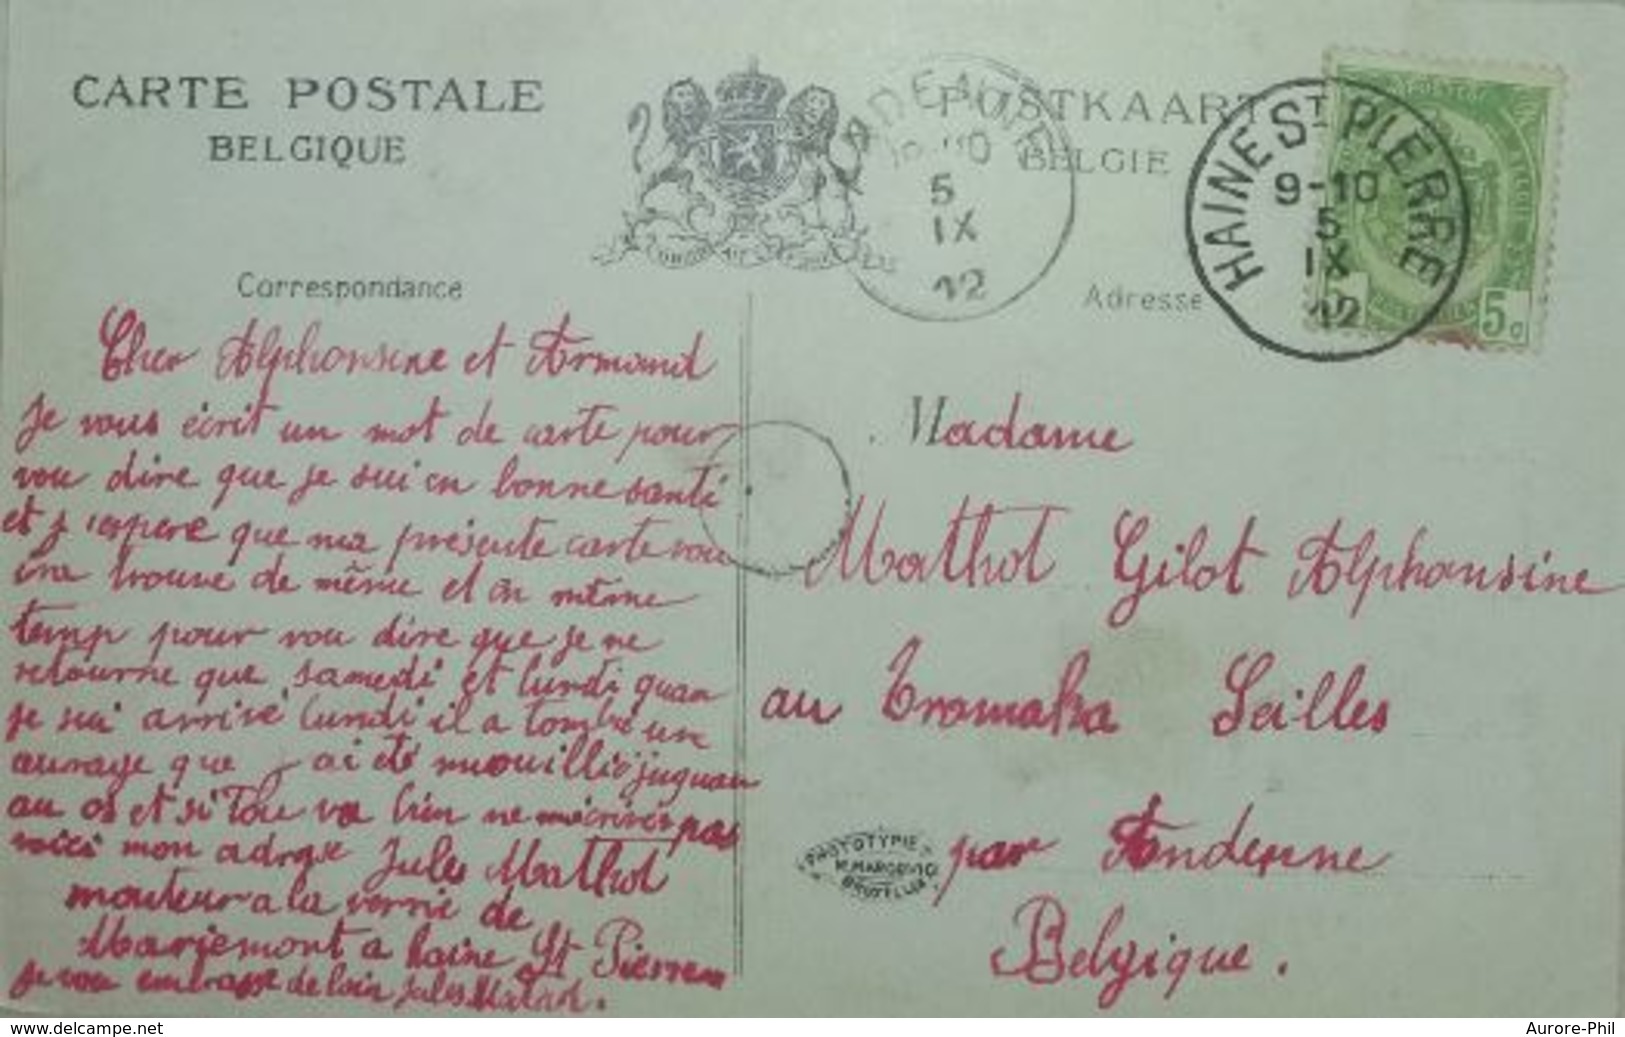 CARTE POSTALE
BELGIQUE
POSTKAART
BELGIE
5
IX
12
HAINE ST PIERRE
9-10
5
IX
12
5c
Correspondance
Adresse
Cher Alphonsine et Armand
Je vous écrit un mot de carte pour
vou dire que je sui en bonne santé
et j'espere que ma présente carte vou
ira trouve de même et en même
temp pour vou dire que je ne
retourne que samedi et lundi quan
je sui arrivé lundi il a tombé un
aurage que j ai été mouillié juquau
au os et si tou va bien ne mécrivér pas
voici mon adrese Jules Mathot
monteur a la verrie de
Mariemont a haine St Pierre
je vou embrasse de loin Jules Matot.
Madame
Mathot Gilot Alphonsine
au Tramaka Seilles
par Andenne
Belgique.
PHOTOTYPIE
BRUXELLES
www.delcampe.net
Aurore-Phil